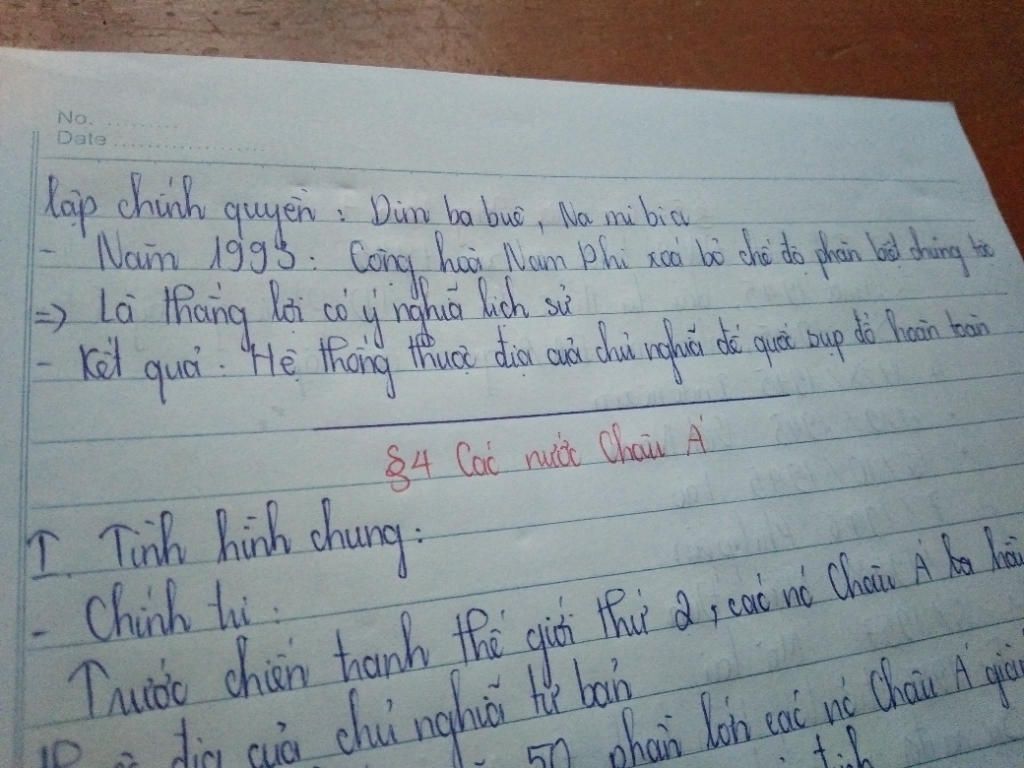 No. ..........
Date ....................
lập chính quyền : Dim ba buê, Na mi bia
- Năm 1993 : Cộng hoà Nam Phi xoá bỏ chế độ phân biệt chủng tộc
=> Là thắng lợi có ý nghĩa lịch sử
- Kết quả : Hệ thống thuộc địa của chủ nghĩa đế quốc sụp đổ hoàn toàn
§4 Các nước Châu Á
I. Tình hình chung :
- Chính trị :
Trước chiến tranh thế giới thứ 2, các nc Châu Á
địa của chủ nghĩa tư bản
50 phần lớn các nc Châu Á